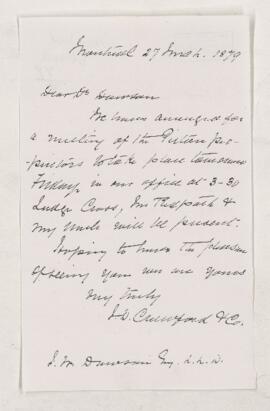 Montreal 27 March 1879
Dear Dr Dawson
We have arranged for
a meeting of the Pictou pro-
prietors to take place tomorrow
Friday in our office at 3-30
Judge Cross, Mr Redpath &
my Uncle will be present-
Hoping to have the pleasure
of seeing you we are yours
very truly
J.D. Crawford & Co.
J. W. Dawson Esq. L.L.D.